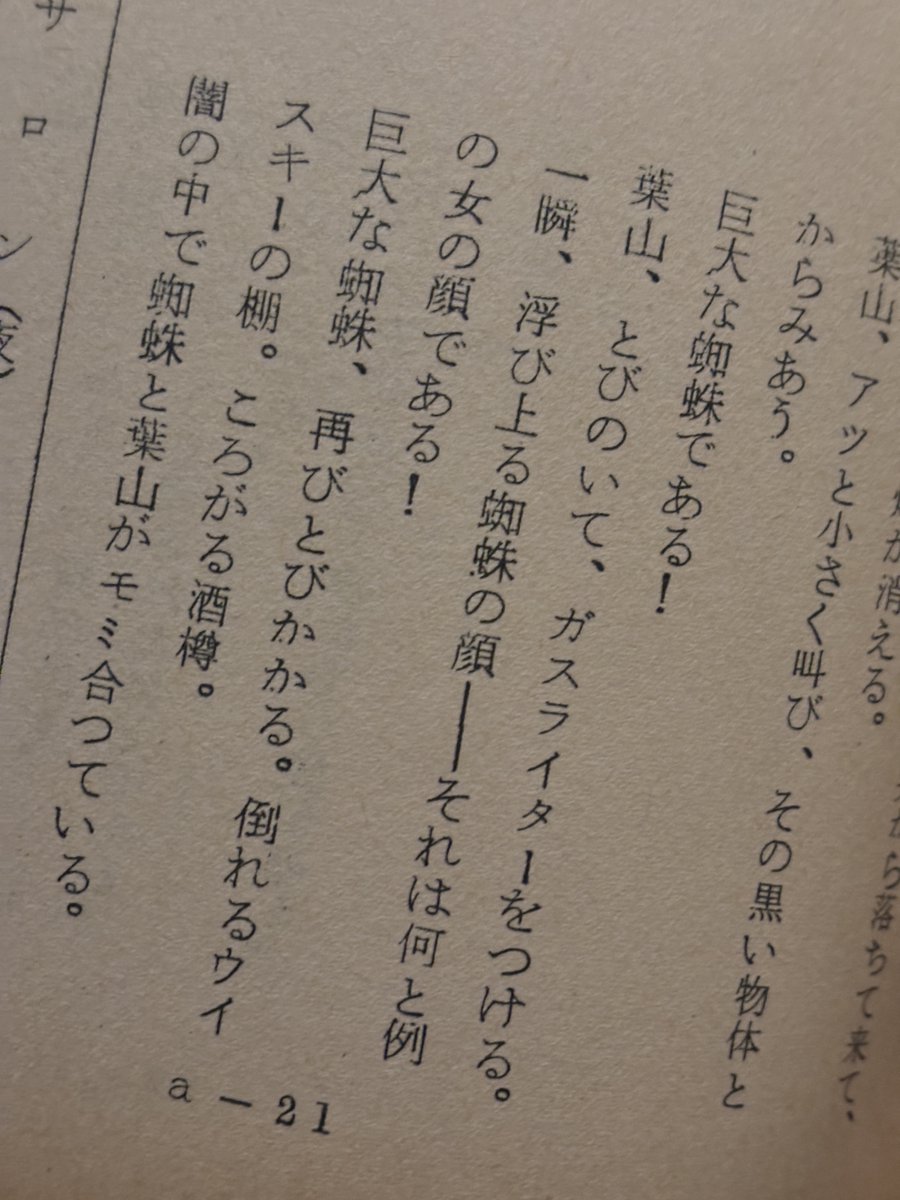 が消える。
から落ちて来て、
葉山、アッと小さく叫び、その黒い物体と
からみあう。
巨大な蜘蛛である！
葉山、とびのいて、ガスライターをつける。
一瞬、浮び上る蜘蛛の顔――それは何と例
の女の顔である！
巨大な蜘蛛、再びとびかかる。倒れるウイ
スキーの棚。ころがる酒樽。
闇の中で蜘蛛と葉山がモミ合つている。
サロン（夜）
a－21